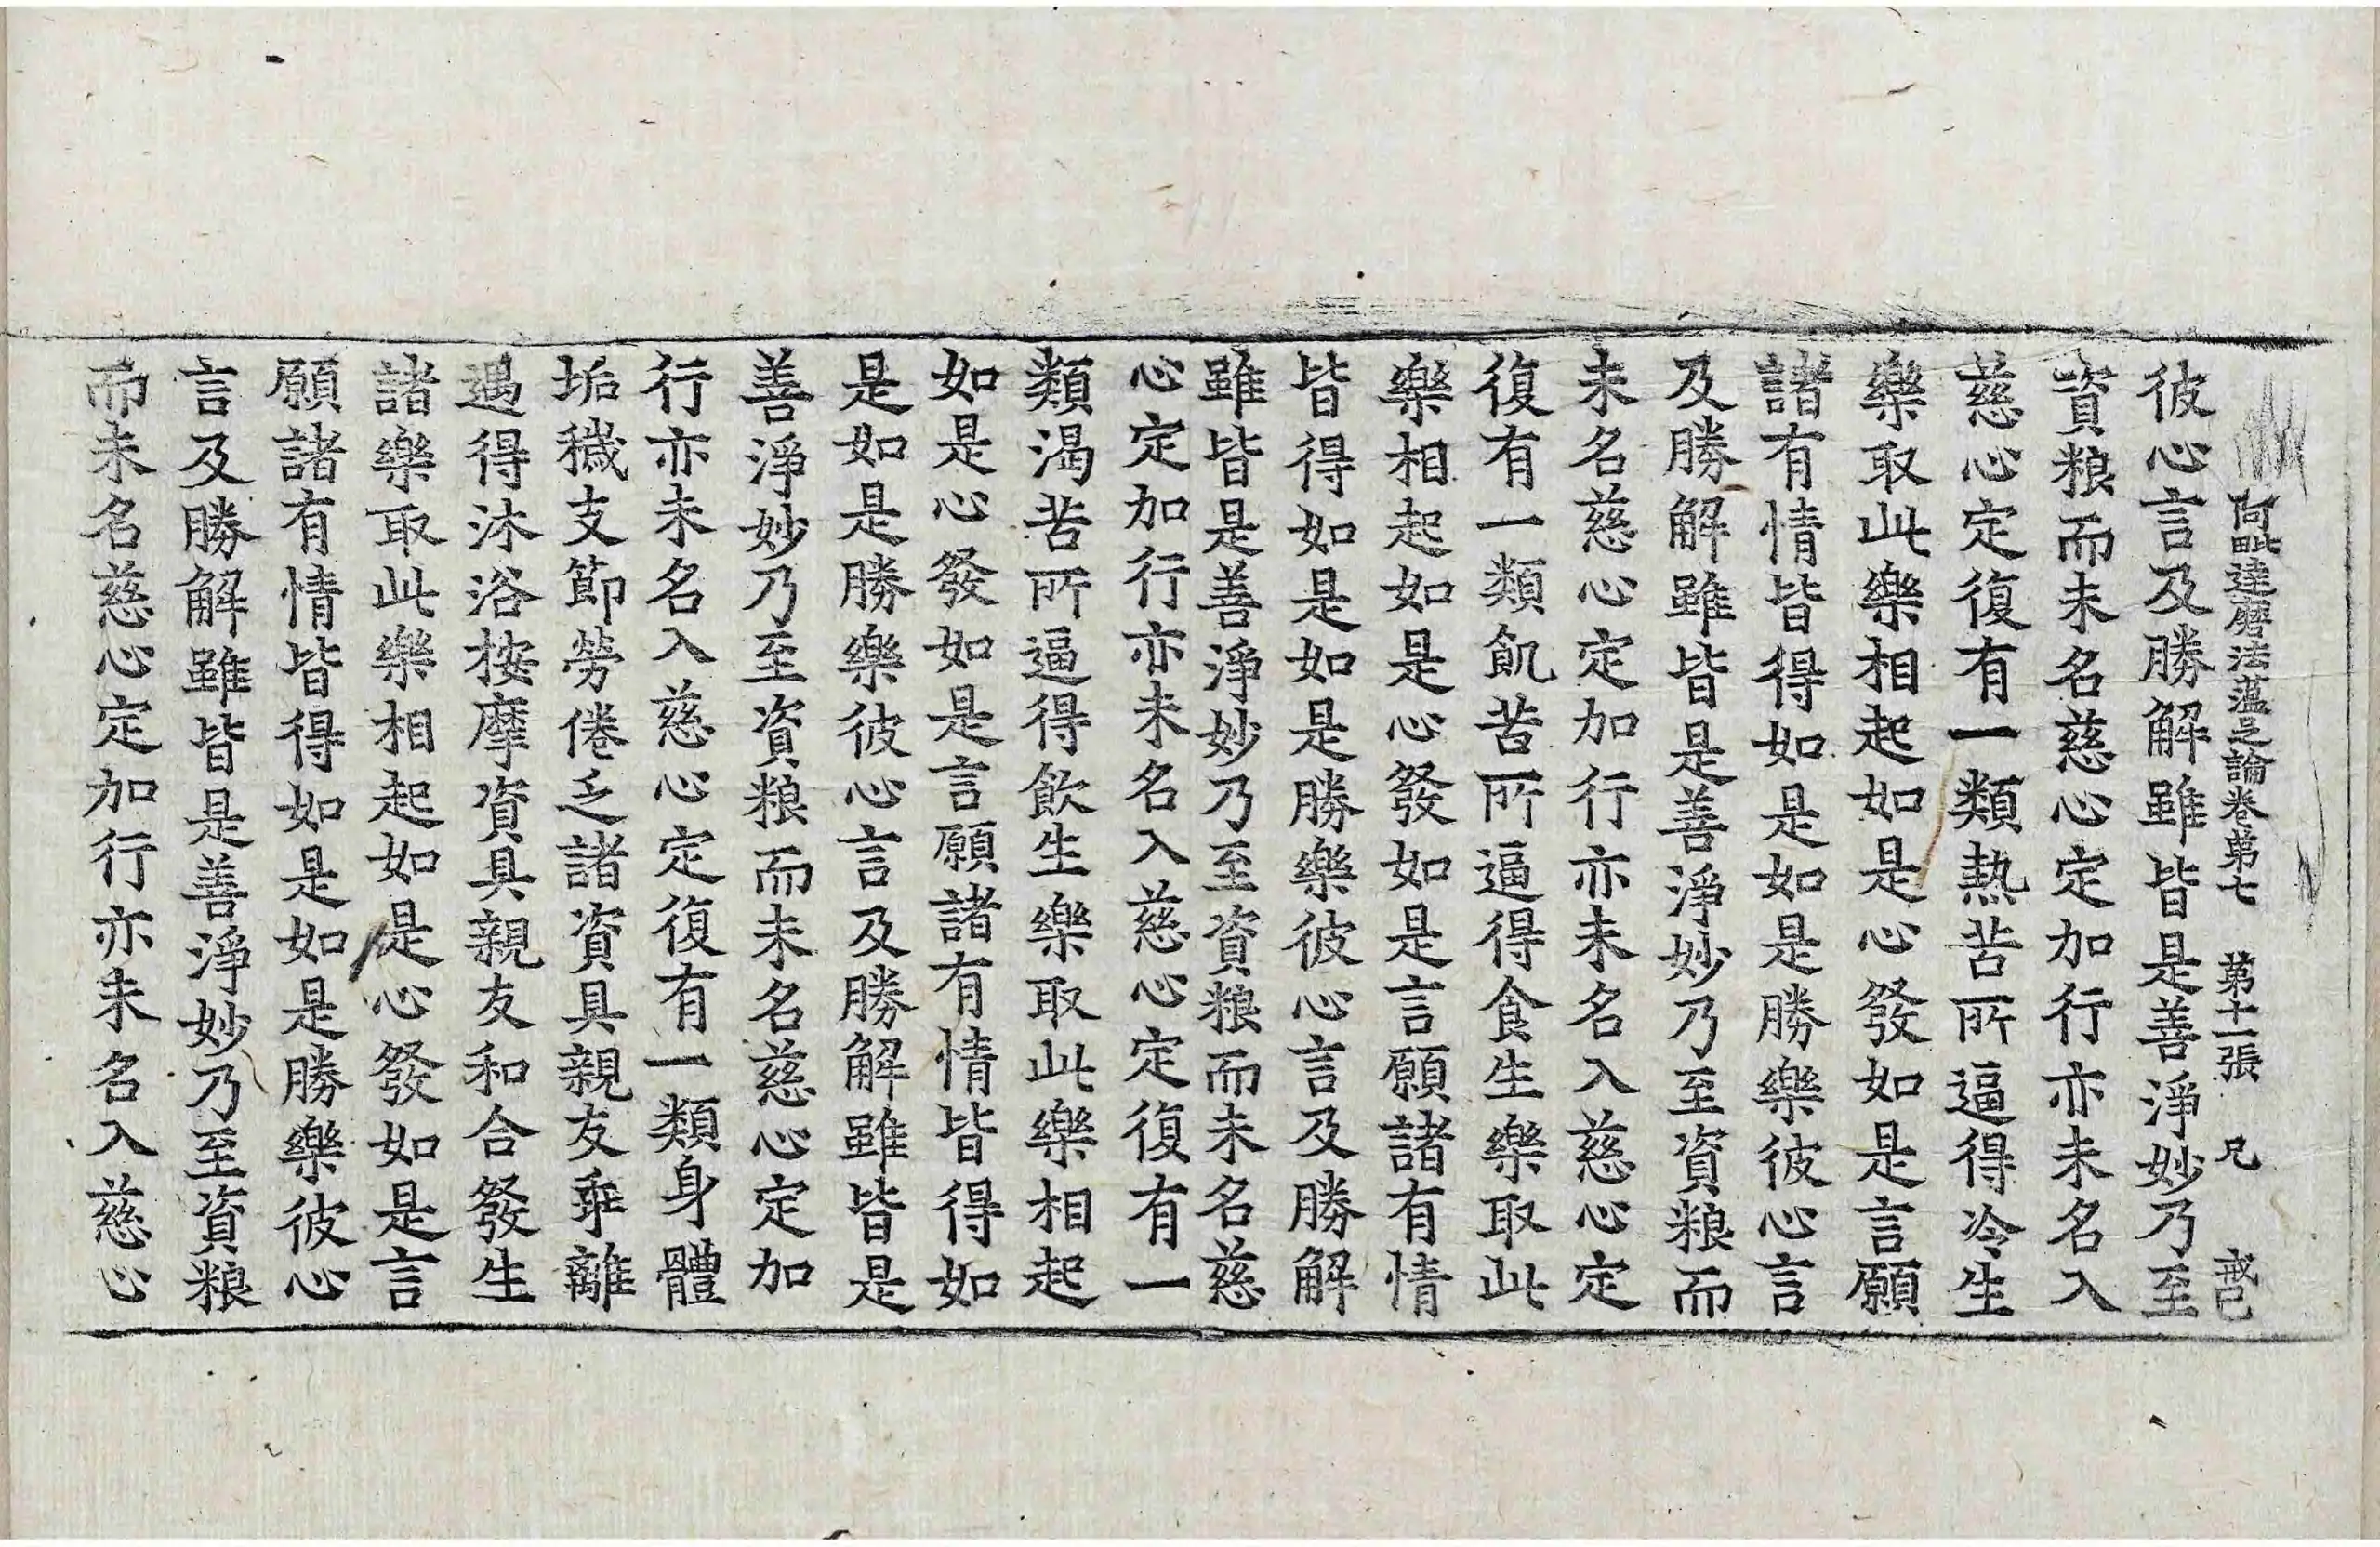 阿毗達磨法蘊足論卷第七　第十一張　兄　戒已
彼心言及勝解雖皆是善淨妙乃至
資粮而未名慈心定加行亦未名入
慈心定復有一類熱苦所逼得冷生
樂取此樂相起如是心發如是言願
諸有情皆得如是如是勝樂彼心言
及勝解雖皆是善淨妙乃至資粮而
未名慈心定加行亦未名入慈心定
復有一類飢苦所逼得食生樂取此
樂相起如是心發如是言願諸有情
皆得如是如是勝樂彼心言及勝解
雖皆是善淨妙乃至資粮而未名慈
心定加行亦未名入慈心定復有一
類渴苦所逼得飲生樂取此樂相起
如是心發如是言願諸有情皆得如
是如是勝樂彼心言及勝解雖皆是
善淨妙乃至資粮而未名慈心定加
行亦未名入慈心定復有一類身體
垢穢支節勞倦乏諸資具親友乖離
遇得沐浴按摩資具親友和合發生
諸樂取此樂相起如是心發如是言
願諸有情皆得如是如是勝樂彼心
言及勝解雖皆是善淨妙乃至資粮
而未名慈心定加行亦未名入慈心